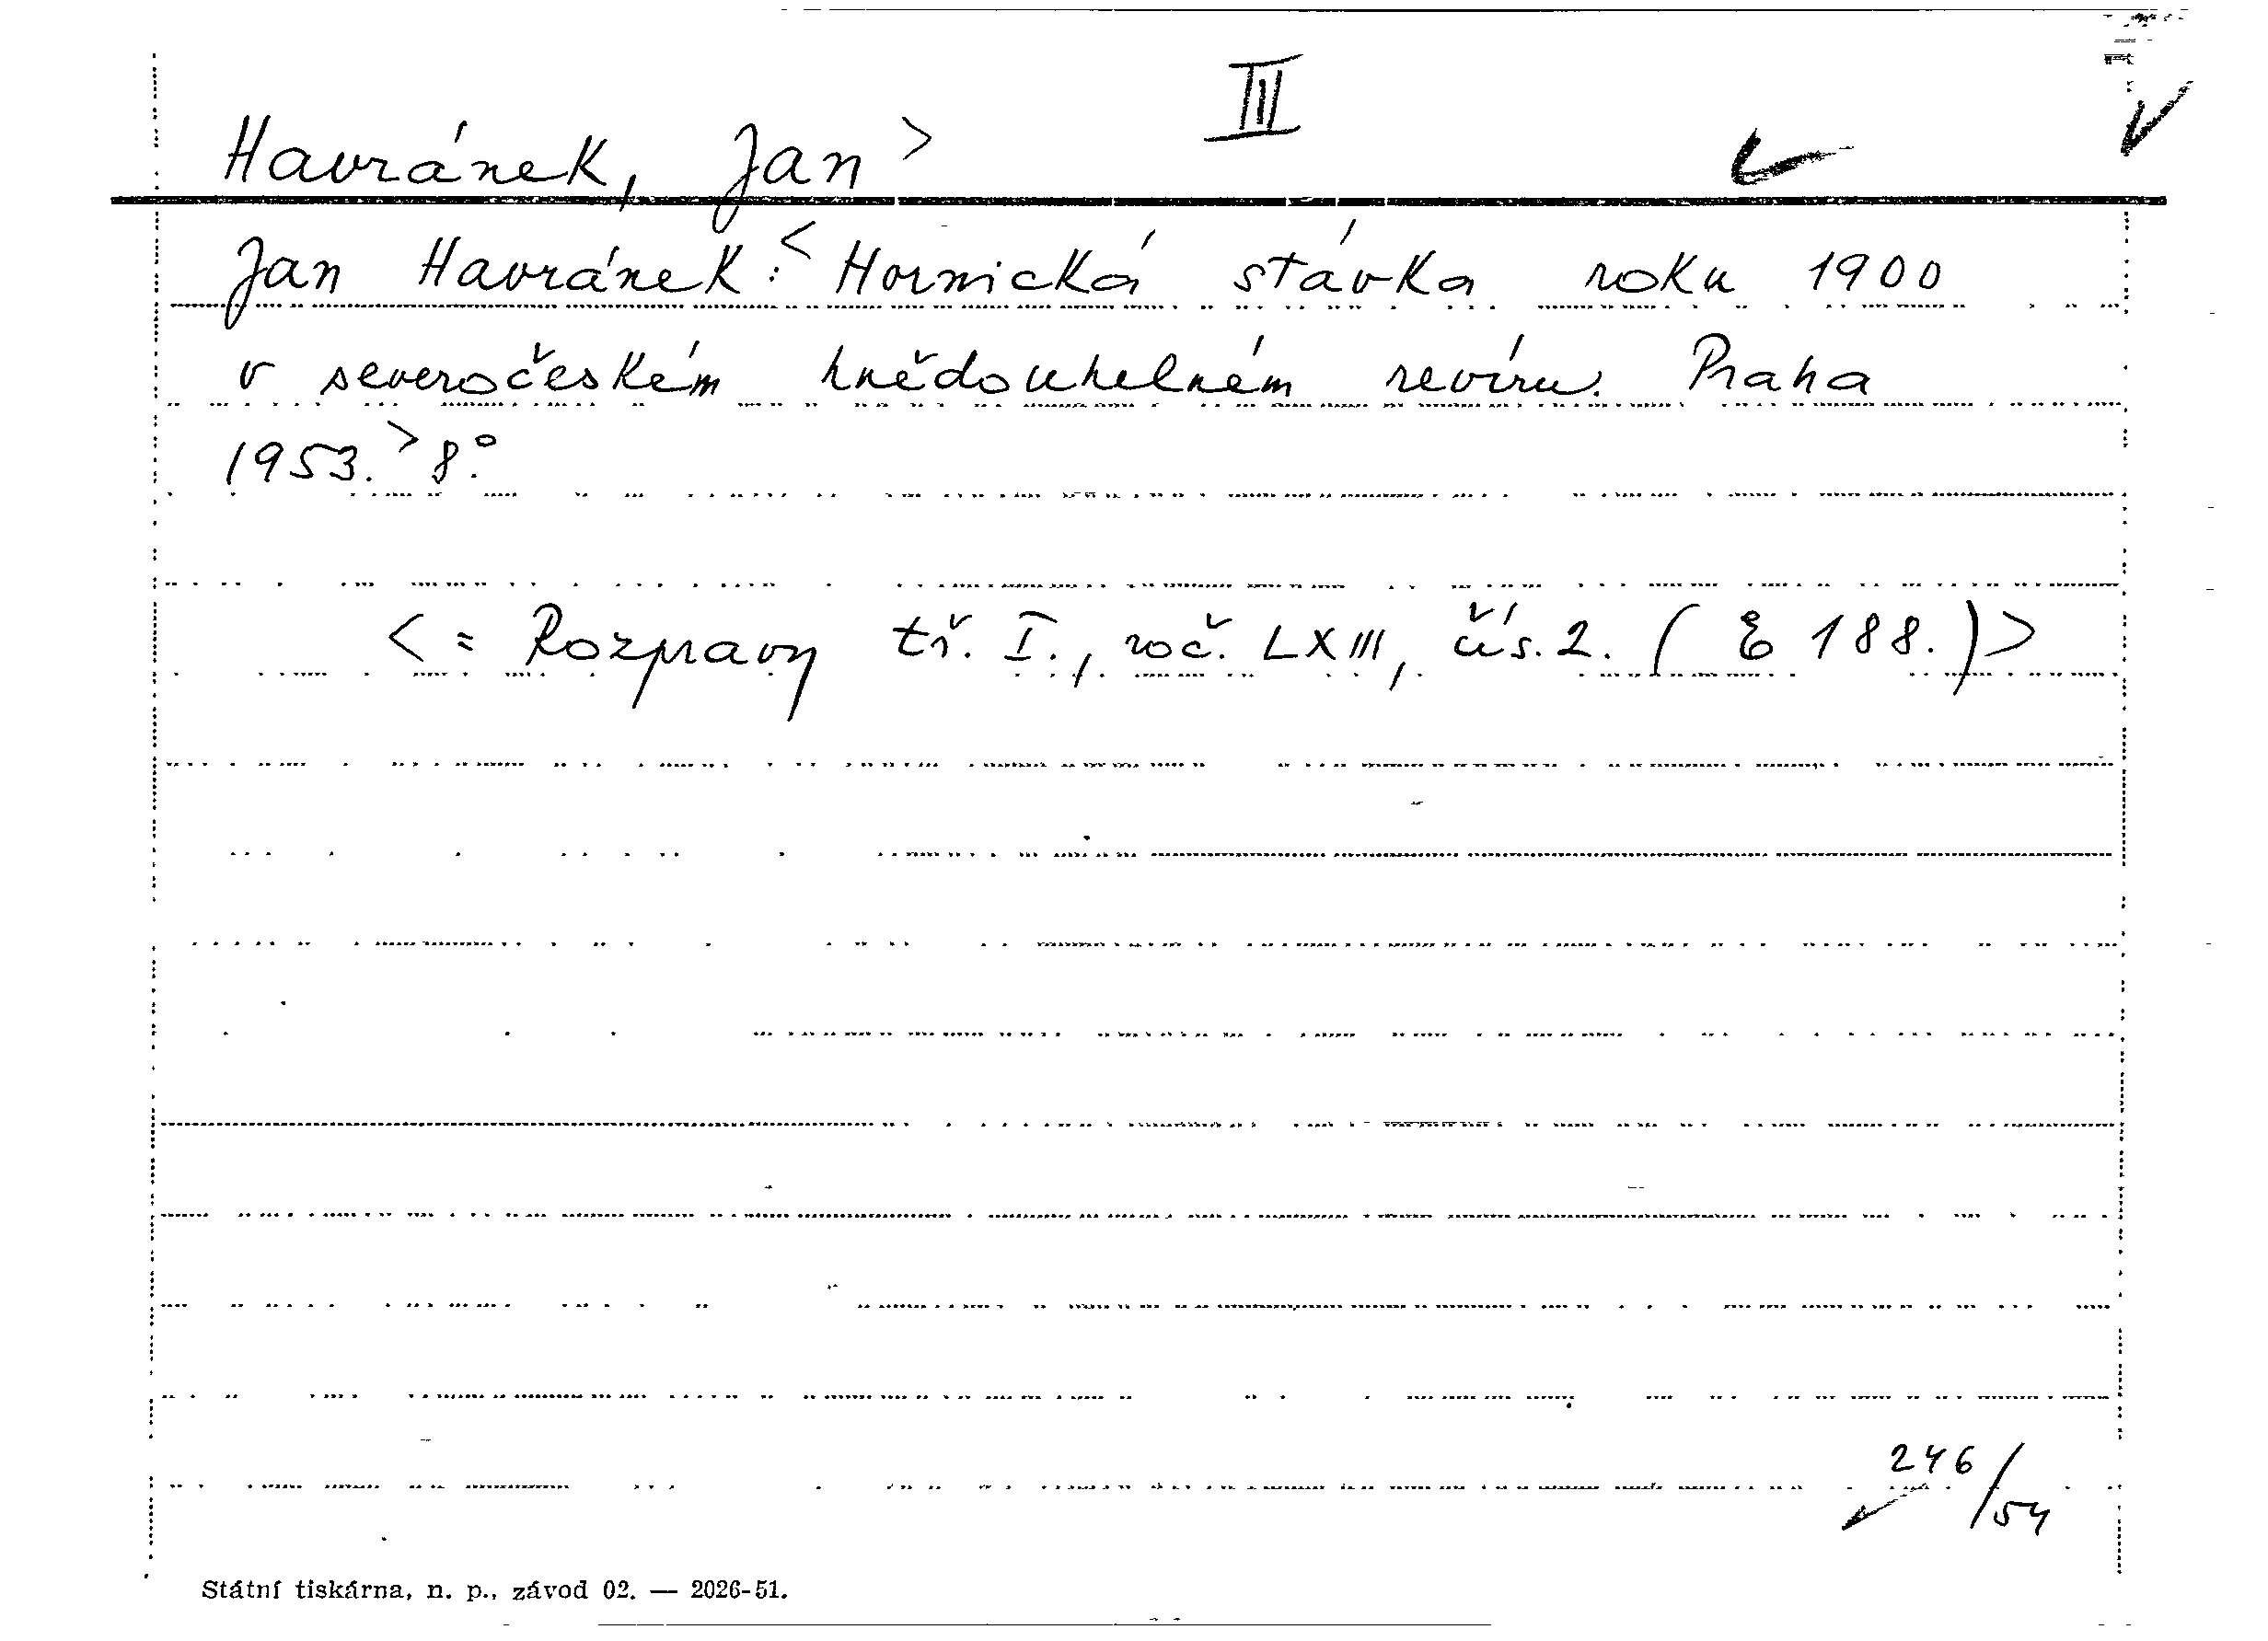 III
Havránek, Jan >
Jan Havránek: < Hornická stávka roku 1900
v severočeském hnědouhelném revíru. Praha
1953. > 8°.
< = Rozpravy tř. I., roč. LXIII, čís. 2. ( E 188. ) >
246/54
Státní tiskárna, n. p., závod 02. — 2026-51.